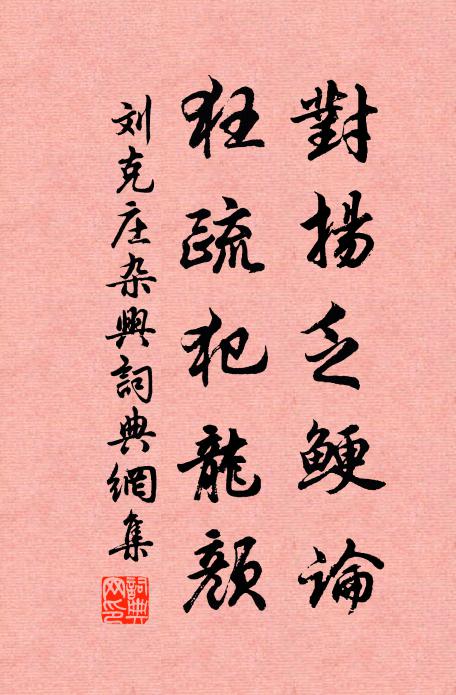 對揚乏鯁論
狂疏犯龍顏
刘克庄杂興詞典網集
詞典網印